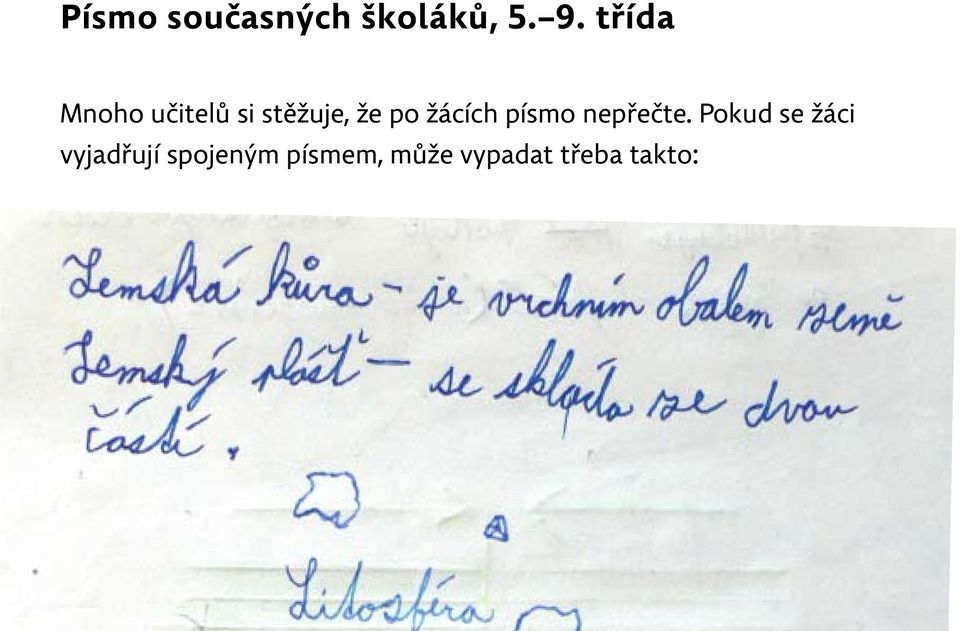 Písmo současných školáků, 5.–9. třída
Mnoho učitelů si stěžuje, že po žácích písmo nepřečte. Pokud se žáci
vyjadřují spojeným písmem, může vypadat třeba takto:
Zemská kůra - je vrchním obalem země
Zemský plášť - se skládá ze dvou
částí.
Litosféra